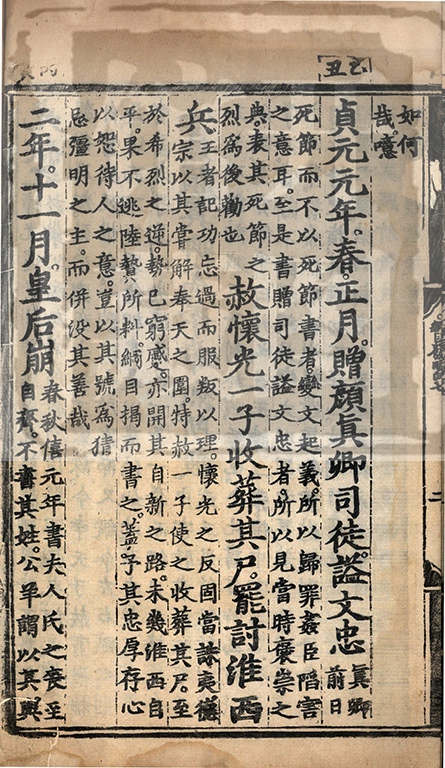 乙丑
如何
哉。噫
貞元元年。春。正月。贈顏真卿司徒。謚文忠
真卿
前日
死節而不以死節書者。變文起義。所以歸罪姦臣陷害
之意耳。至是書贈司徒謚文忠者。所以見當時褒崇之
典。表其死節之
烈。為後勸也
赦懷光一子收葬其尸。罷討淮西
兵
王者記功忘過而服叛以理。懷光之反固當誅夷。德
宗以其嘗解奉天之圍。特赦一子使之收葬其尸。至
於希烈之逆。勢已窮蹙。亦開其自新之路。未幾淮西自
平。果不逃陸贄所料。綱目揭而書之。蓋予其忠厚存心
以恕待人之意。豈以其號為猜
忌彊明之主。而併沒其善哉
二年。十一月。皇后崩
春秋僖元年書夫人氏之喪至
自齊。不書其姓。公羊謂以其與